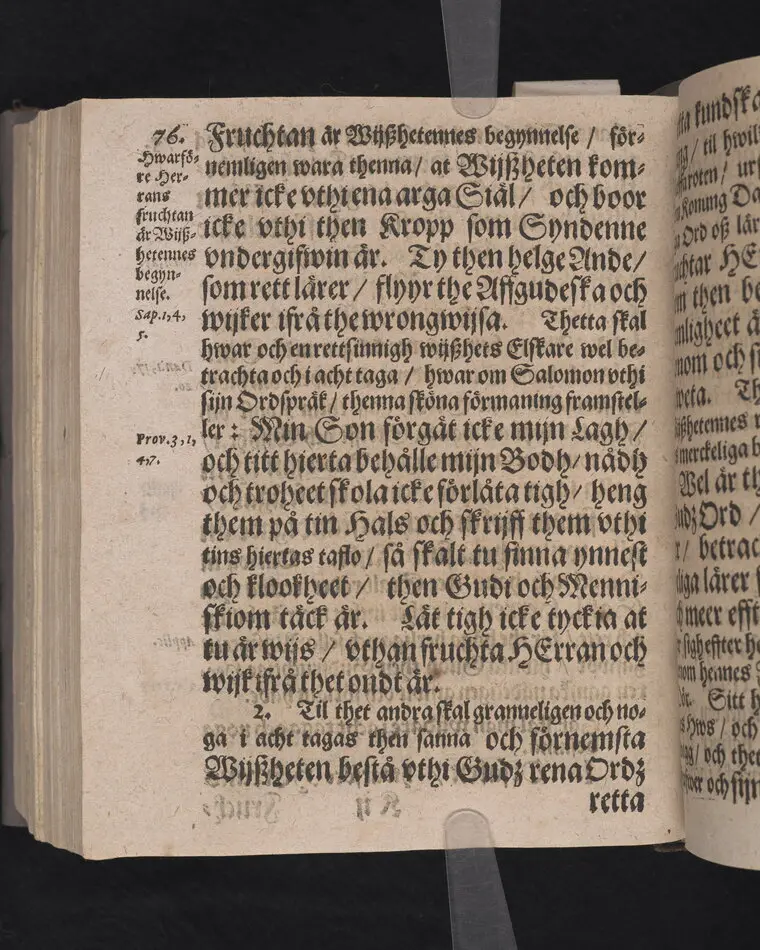 76.
Hwarfö-
re Her-
rans
fruchtan
är Wijß-
hetennes
begyn-
nelse.
Sap. 1, 4,
5.
Prov. 3, 1,
4, 7.
Fruchtan är Wijßhetennes begynnelse / för-
nemligen wara thenna / at Wijßheten kom-
mer icke vthi ena arga Siäl / och boor
icke vthi then Kropp som Syndenne
vndergifwin är. Ty then helge Ande /
som rett lärer / flyyr the Affgudeska och
wijker ifrå the wrongwijsa. Thetta skal
hwar och en rettsinnigh wijßhets Elskare wel be-
trachta och i acht taga / hwar om Salomon vthi
sijn Ordspråk / thenna sköna förmaning framstel-
ler: Min Son förgät icke mijn Lagh /
och titt hierta behålle mijn Bodh / nådh
och troheet skola icke förlåta tigh / heng
them på tin Hals och skrijff them vthi
tins hiertas taflo / så skalt tu finna ynnest
och klookheet / then Gudi och Menni-
skiom täck är. Lät tigh icke tyckia at
tu är wijs / vthan fruchta HErran och
wijk ifrå thet ondt är.
2. Til thet andra skal granneligen och no-
ga i acht tagas then sanna och förnemsta
Wijßheten bestå vthi Gudz rena Ordz
retta
kundska
/ til hwil
roten / ur
Konung Da
Ord oß lär
chtar HE
m then be
nligheet ä
nom och s
weta. Th
ßhetennes
merckeliga b
Wel är th
udz Ord /
/ betrac
iga lärer
meer efft
sigh effter h
om hennes
Sitt h
Hws / och
/ och the
wer och sijn